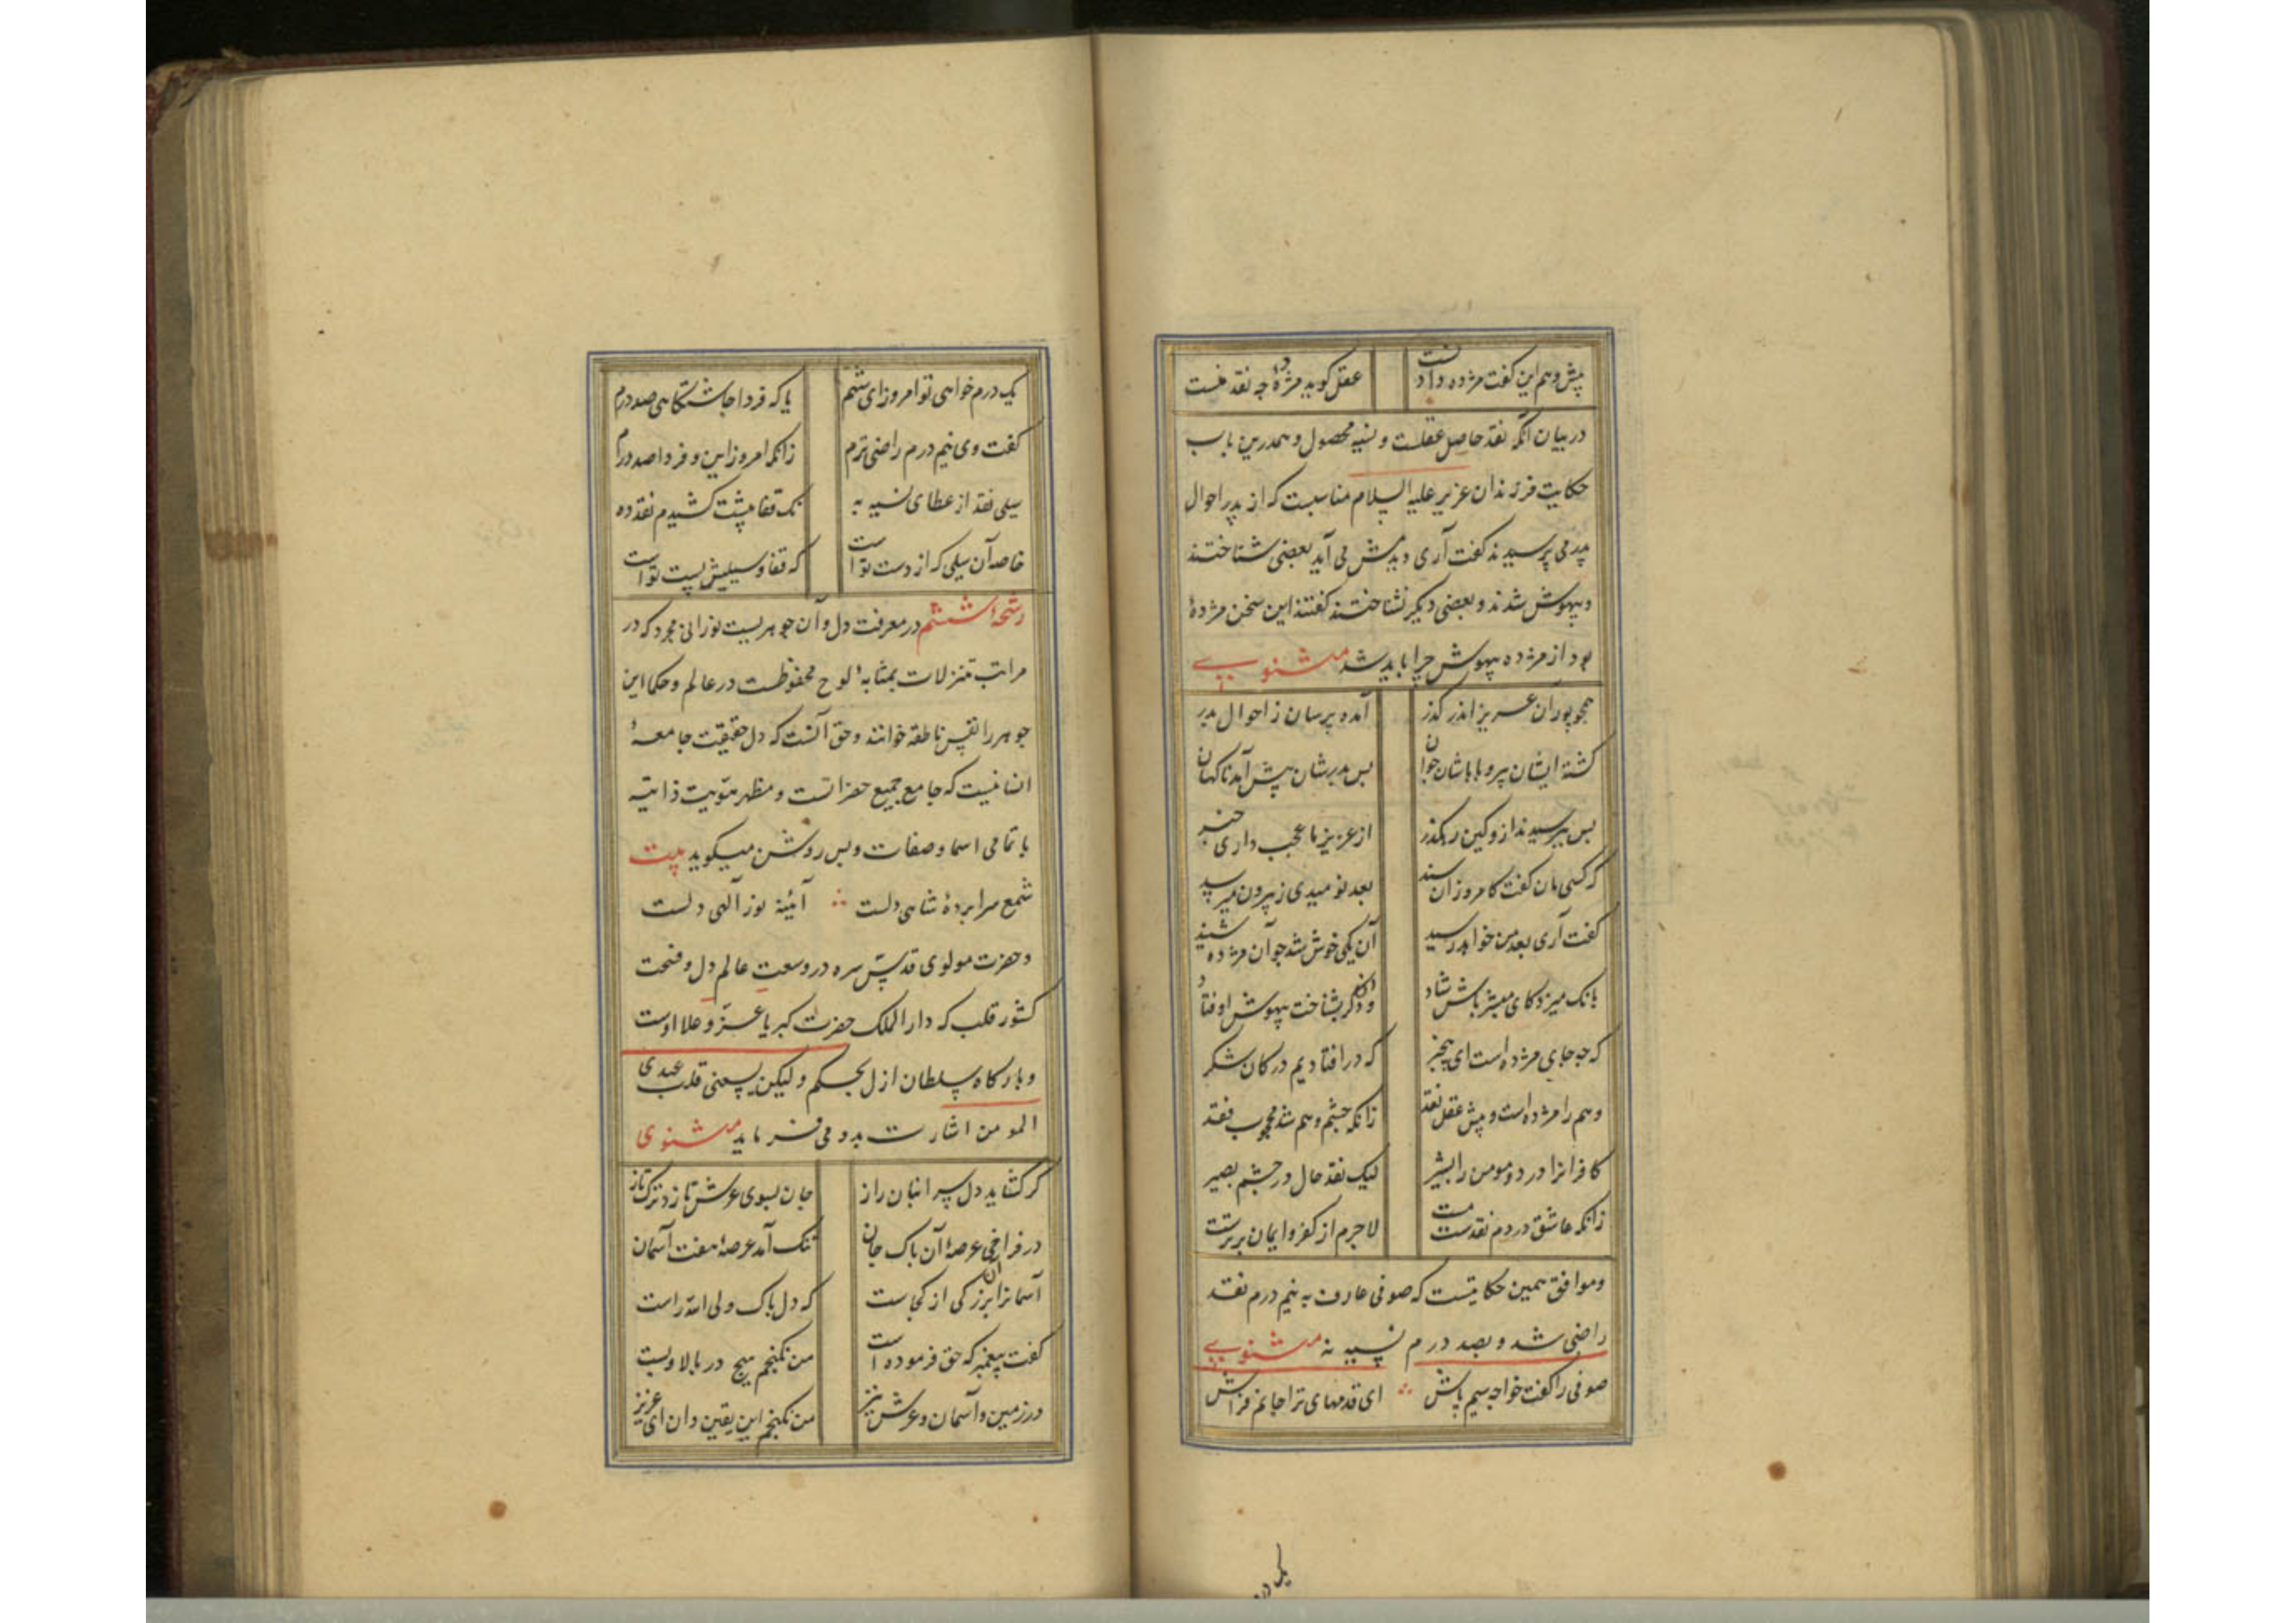 پیش وهم این گفت مژده دادنست عقل کوید مژدهٔ چه نقد منست
در بیان آنکه نقد حاصل عقلست و نسیه محصول وهم درین باب
حکایت فرزندان عزیر علیه السلام مناسبت که از پدر احوال
پدر می پرسیدند گفت آری دیدمش می آید بعضی شناختند
و بیهوش شدند و بعضی دیگر نشناختند گفتند این سخن مژدهٔ
بود از مژده بیهوش چرا باید شد مثنوی
همچو پوران عزیز اندر گذر آمده پرسان ز احوال پدر
گشته ایشان پیر و باباشان جوان پس پدرشان پیش آمد ناگهان
پس بپرسیدند ازو کین رهگذر از عزیز ما عجب داری خبر
که کسی مان گفت کامروز آن سند بعد نومیدی ز بیرون میرسد
گفت آری بعد من خواهد رسید آن یکی خوش شد چو آن مژده شنید
بانک میزد کای مبشر باش شاد وان دگر بشناخت بیهوش اوفتاد
که چه جای مژده است ای بیخبر که در افتادیم در کان شکر
وهم را مژده است و پیش عقل نقد زانکه چشم وهم شد محجوب فقد
کافرانرا درد و مومن را بشیر لیک نقد حال در چشم بصیر
زانکه عاشق در دم نقدست مست لاجرم از کفر و ایمان برترست
و موافق همین حکایتست که صوفی عارف به نیم درم نقد
راضی شد و بصد درم نسیه نه مثنوی
صوفی را گفت خواجه سیم پاش ∴ ای قدمهای ترا جانم فراش
یک درم خواهی تو امروز ای شهم یا که فردا چاشتگاهی صد درم
گفت وی نیم درم راضی ترم زانکه امروز این و فردا صد درم
سیلی نقد از عطای نسیه به نک قفا پیشت کشیدم نقد ده
خاصه آن سیلی که از دست تو است که قفا و سیلیش پست تو است
رشحهٔ ششم در معرفت دل و آن جوهریست نورانی مجرد که در
مراتب تنزلات بمثابهٔ لوح محفوظست در عالم و حکما این
جوهر را نفس ناطقه خوانند و حق آنست که دل حقیقت جامعهٔ
انسانیست که جامع جمیع حضراتست و مظهر هویت ذاتیه
با تمامی اسما و صفات و بس روشن میگوید بیت
شمع سرابردهٔ شاهی دلست ∴ آئینه نور آلهی دلست
و حضرت مولوی قدس سره در وسعت عالم دل و فسحت
کشور قلب که دار الملک حضرت کبریا عز و علا اوست
و بارگاه سلطان ازل بحکم ولیکن یسعنی قلب عبدی
المومن اشارت بدو می فرماید مثنوی
گر گشاید دل سر انبان راز جان بسوی عرش تازد ترکتاز
در فراخی عرصهٔ آن پاک جان تنگ آمد عرصهٔ هفت آسمان
آسمانرا آن بزرگی از کجاست که دل پاک ولی الله راست
گفت پیغمبر که حق فرموده است من نگنجم هیچ در بالا و پست
در زمین و آسمان و عرش نیز من نگنجم این یقین دان ای عزیز